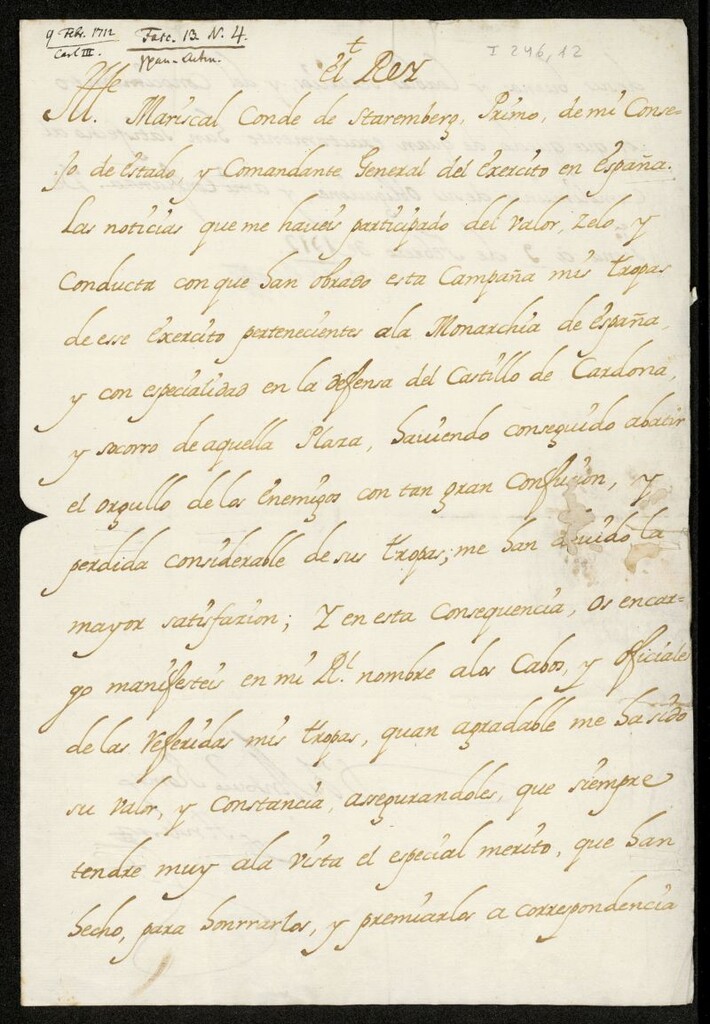 9 Febr. 1712
Carl III.
Fasc. 13. N. 4.
I 246, 12
el Rey
Mariscal Conde de Staremberg, Primo, de mi Conse=
jo de estado, y Comandante General del exercito en españa.
Las noticias que me haveis participado del valor, zelo, y
Conducta con que han obrado esta Campaña mis tropas
de esse exercito pertenecientes ala Monarchia de españa,
y con especialidad en la defensa del Castillo de Cardona,
y socorro de aquella Plaza, haviendo conseguido abatir
el orgullo de los enemigos con tan gran Confusion, y
perdida considerable de sus tropas; me han devido la
mayor satisfazion; Y en esta Consequencia, os encar=
go manifesteis en mi Rl. nombre alos Cabos, y oficiales
de las referidas mis tropas, quan agradable me ha sido
su valor, y Constancia, assegurandoles, que siempre
tendre muy ala vista el especial merito, que han
hecho, para honrrarlos, y premiarlos a correspondencia